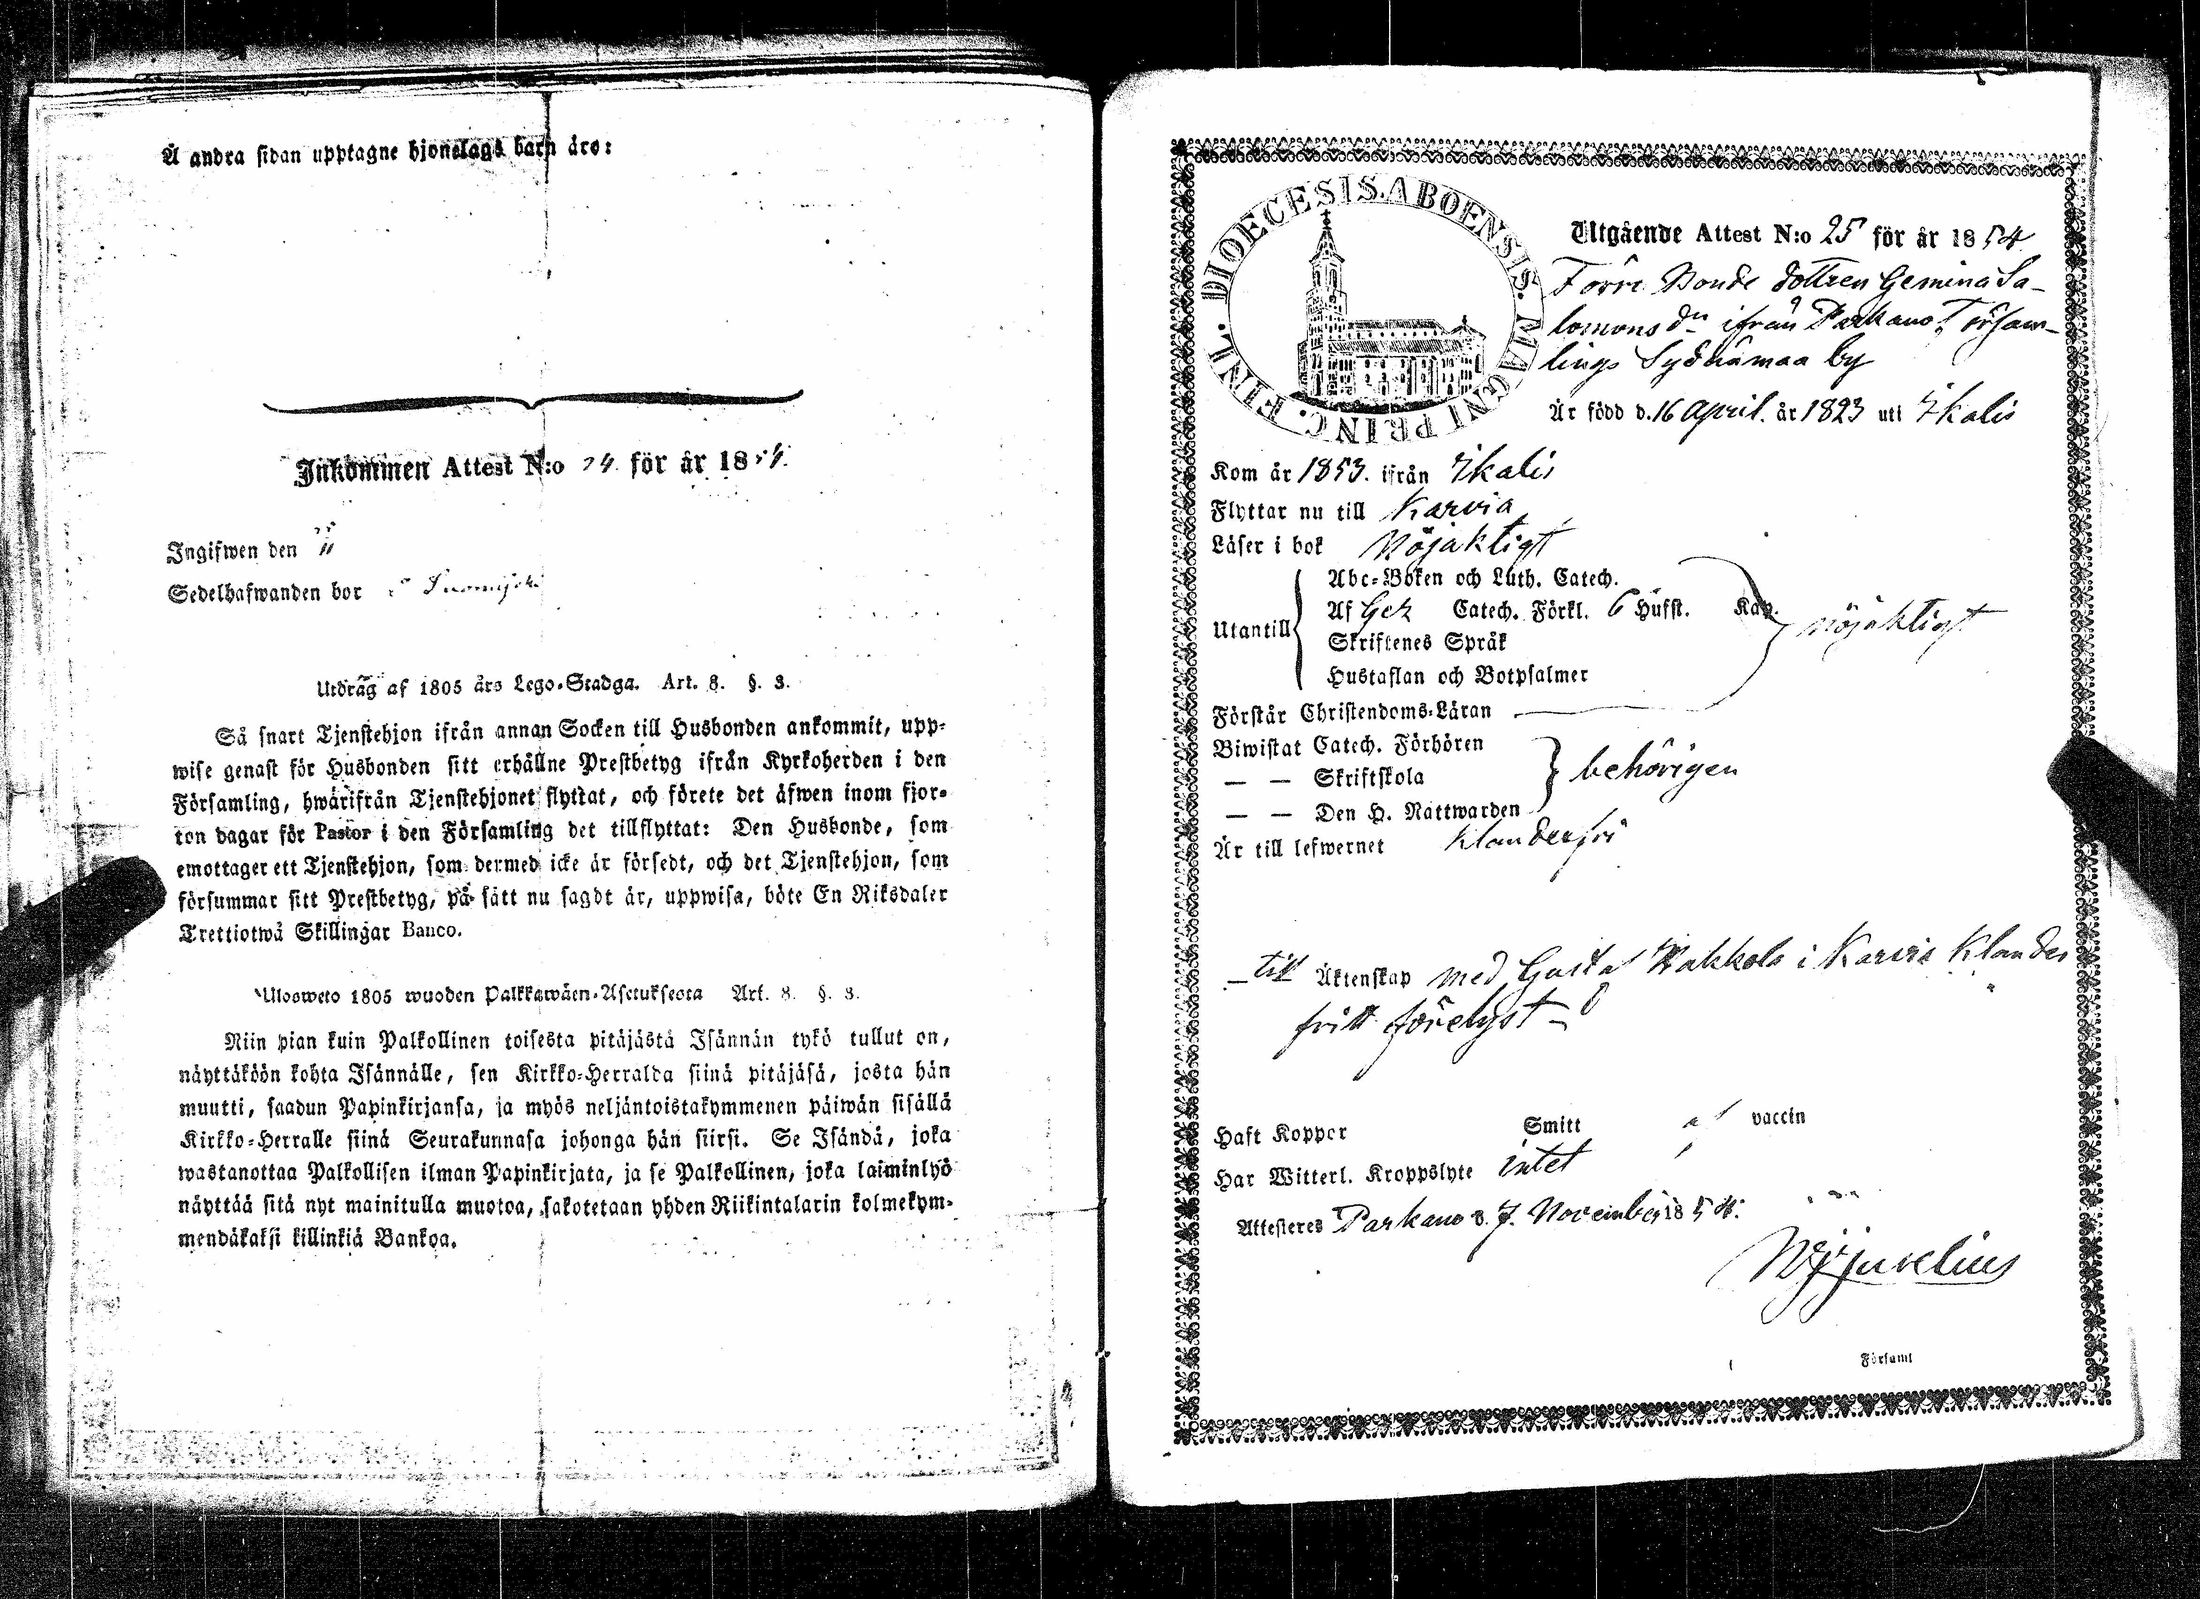 Å andra sidan upptagne hjonelags barn äro:
Inkommen Attest N:o 24. för år 1854.
Ingifwen den
Sedelhafwanden bor
Utdrag af 1805 års Lego-Stadga. Art. 8. §. 3.
Så snart Tjenstehjon ifrån annan Socken till Husbonden ankommit, upp-
wise genast för Husbonden sitt erhållne Prestbetyg ifrån Kyrkoherden i den
Församling, hwarifrån Tjenstehjonet flyttat, och förete det äfwen inom fjor-
ton dagar för Pastor i den Församling det tillflyttat: Den Husbonde, som
emottager ett Tjenstehjon, som dermed icke är försedt, och det Tjenstehjon, som
försummar sitt Prestbetyg, på sätt nu sagdt är, uppwisa, böte En Riksdaler
Trettiotwå Skillingar Banco.
Ulosweto 1805 wuoden Palkkawäen-Asetuksesta Art. 8. §. 3.
Niin pian kuin Palkollinen toisesta pitäjästä Isännän tykö tullut on,
näyttäköön kohta Isännälle, sen Kirkko-Herralda siinä pitäjäsä, josta hän
muutti, saadun Papinkirjansa, ja myös neljäntoistakymmenen päiwän sisällä
Kirkko-Herralle siinä Seurakunnasa johonga hän siirsi. Se Isändä, joka
wastanottaa Palkollisen ilman Papinkirjata, ja se Palkollinen, joka laiminlyö
näyttää sitä nyt mainitulla muotoa, sakotetaan yhden Riikintalarin kolmekym-
mendäkaksi killinkiä Bankoa.
FINL. DIOECESIS. ABOENSIS. MAGNI PRINC.
Utgående Attest N:o 25 för år 1854
Förre Bonde dottren Gemina Sa-
lomons dr ifrån Parkano Försam-
lings Sydänmaa by
Är född d. 16 April. år 1823 uti Ikalis
Kom år 1853. ifrån Ikalis
Flyttar nu till Karvia
Läser i bok Nöjaktigt
Abc-Boken och Luth. Catech.
Utantill Af Gez Catech. Förkl. 6 Hufst. Kap. nöjaktigt
Skriftenes Språk
Hustaflan och Botpsalmer
Förstår Christendoms-Läran
Biwistat Catech. Förhören
— — Skriftskola behörigen
— — Den H. Nattwarden
Är till lefwernet klanderfri
— till Äktenskap med Gustaf Wakkola i Karvia klander
fritt förelyst —
Haft Koppor Smitt af vaccin
Har Witterl. Kroppslyte intet
Attesteres Parkano d. 7. November 1854.
WJJuvelius
Församl